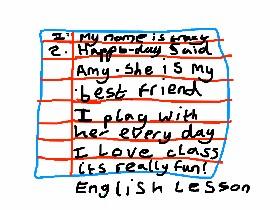 1. My name is crazy
2. Happy-day Said
Amy. She is my
best friend
I play with
her every day
I Love class
its really fun!
English Lesson